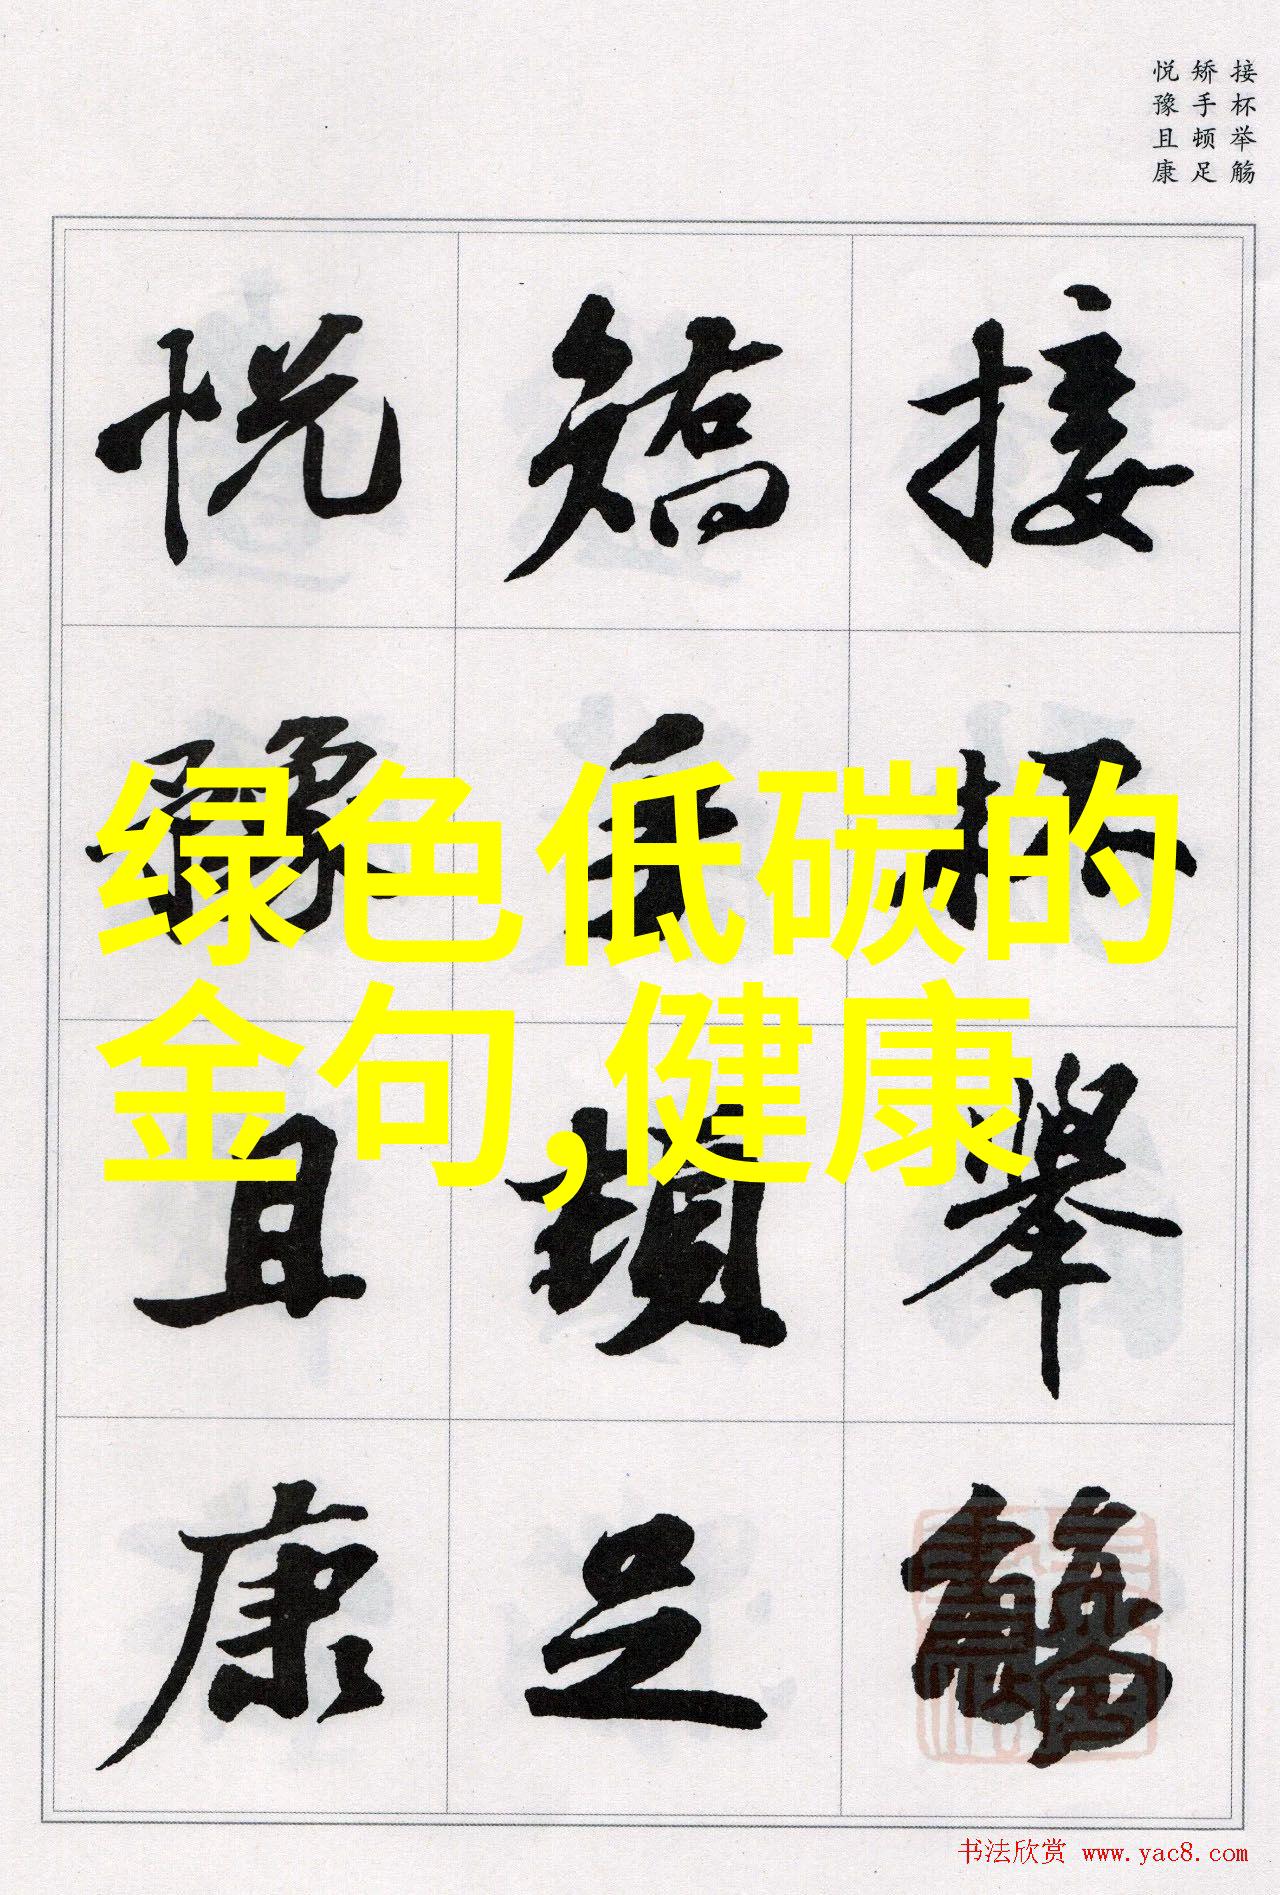 接杯举觞
矫手顿足
悦豫且康
接杯舉觴
矯手頓足
悦豫且康
绿色低碳的
金句,健康
书法欣赏 www.yac8.com